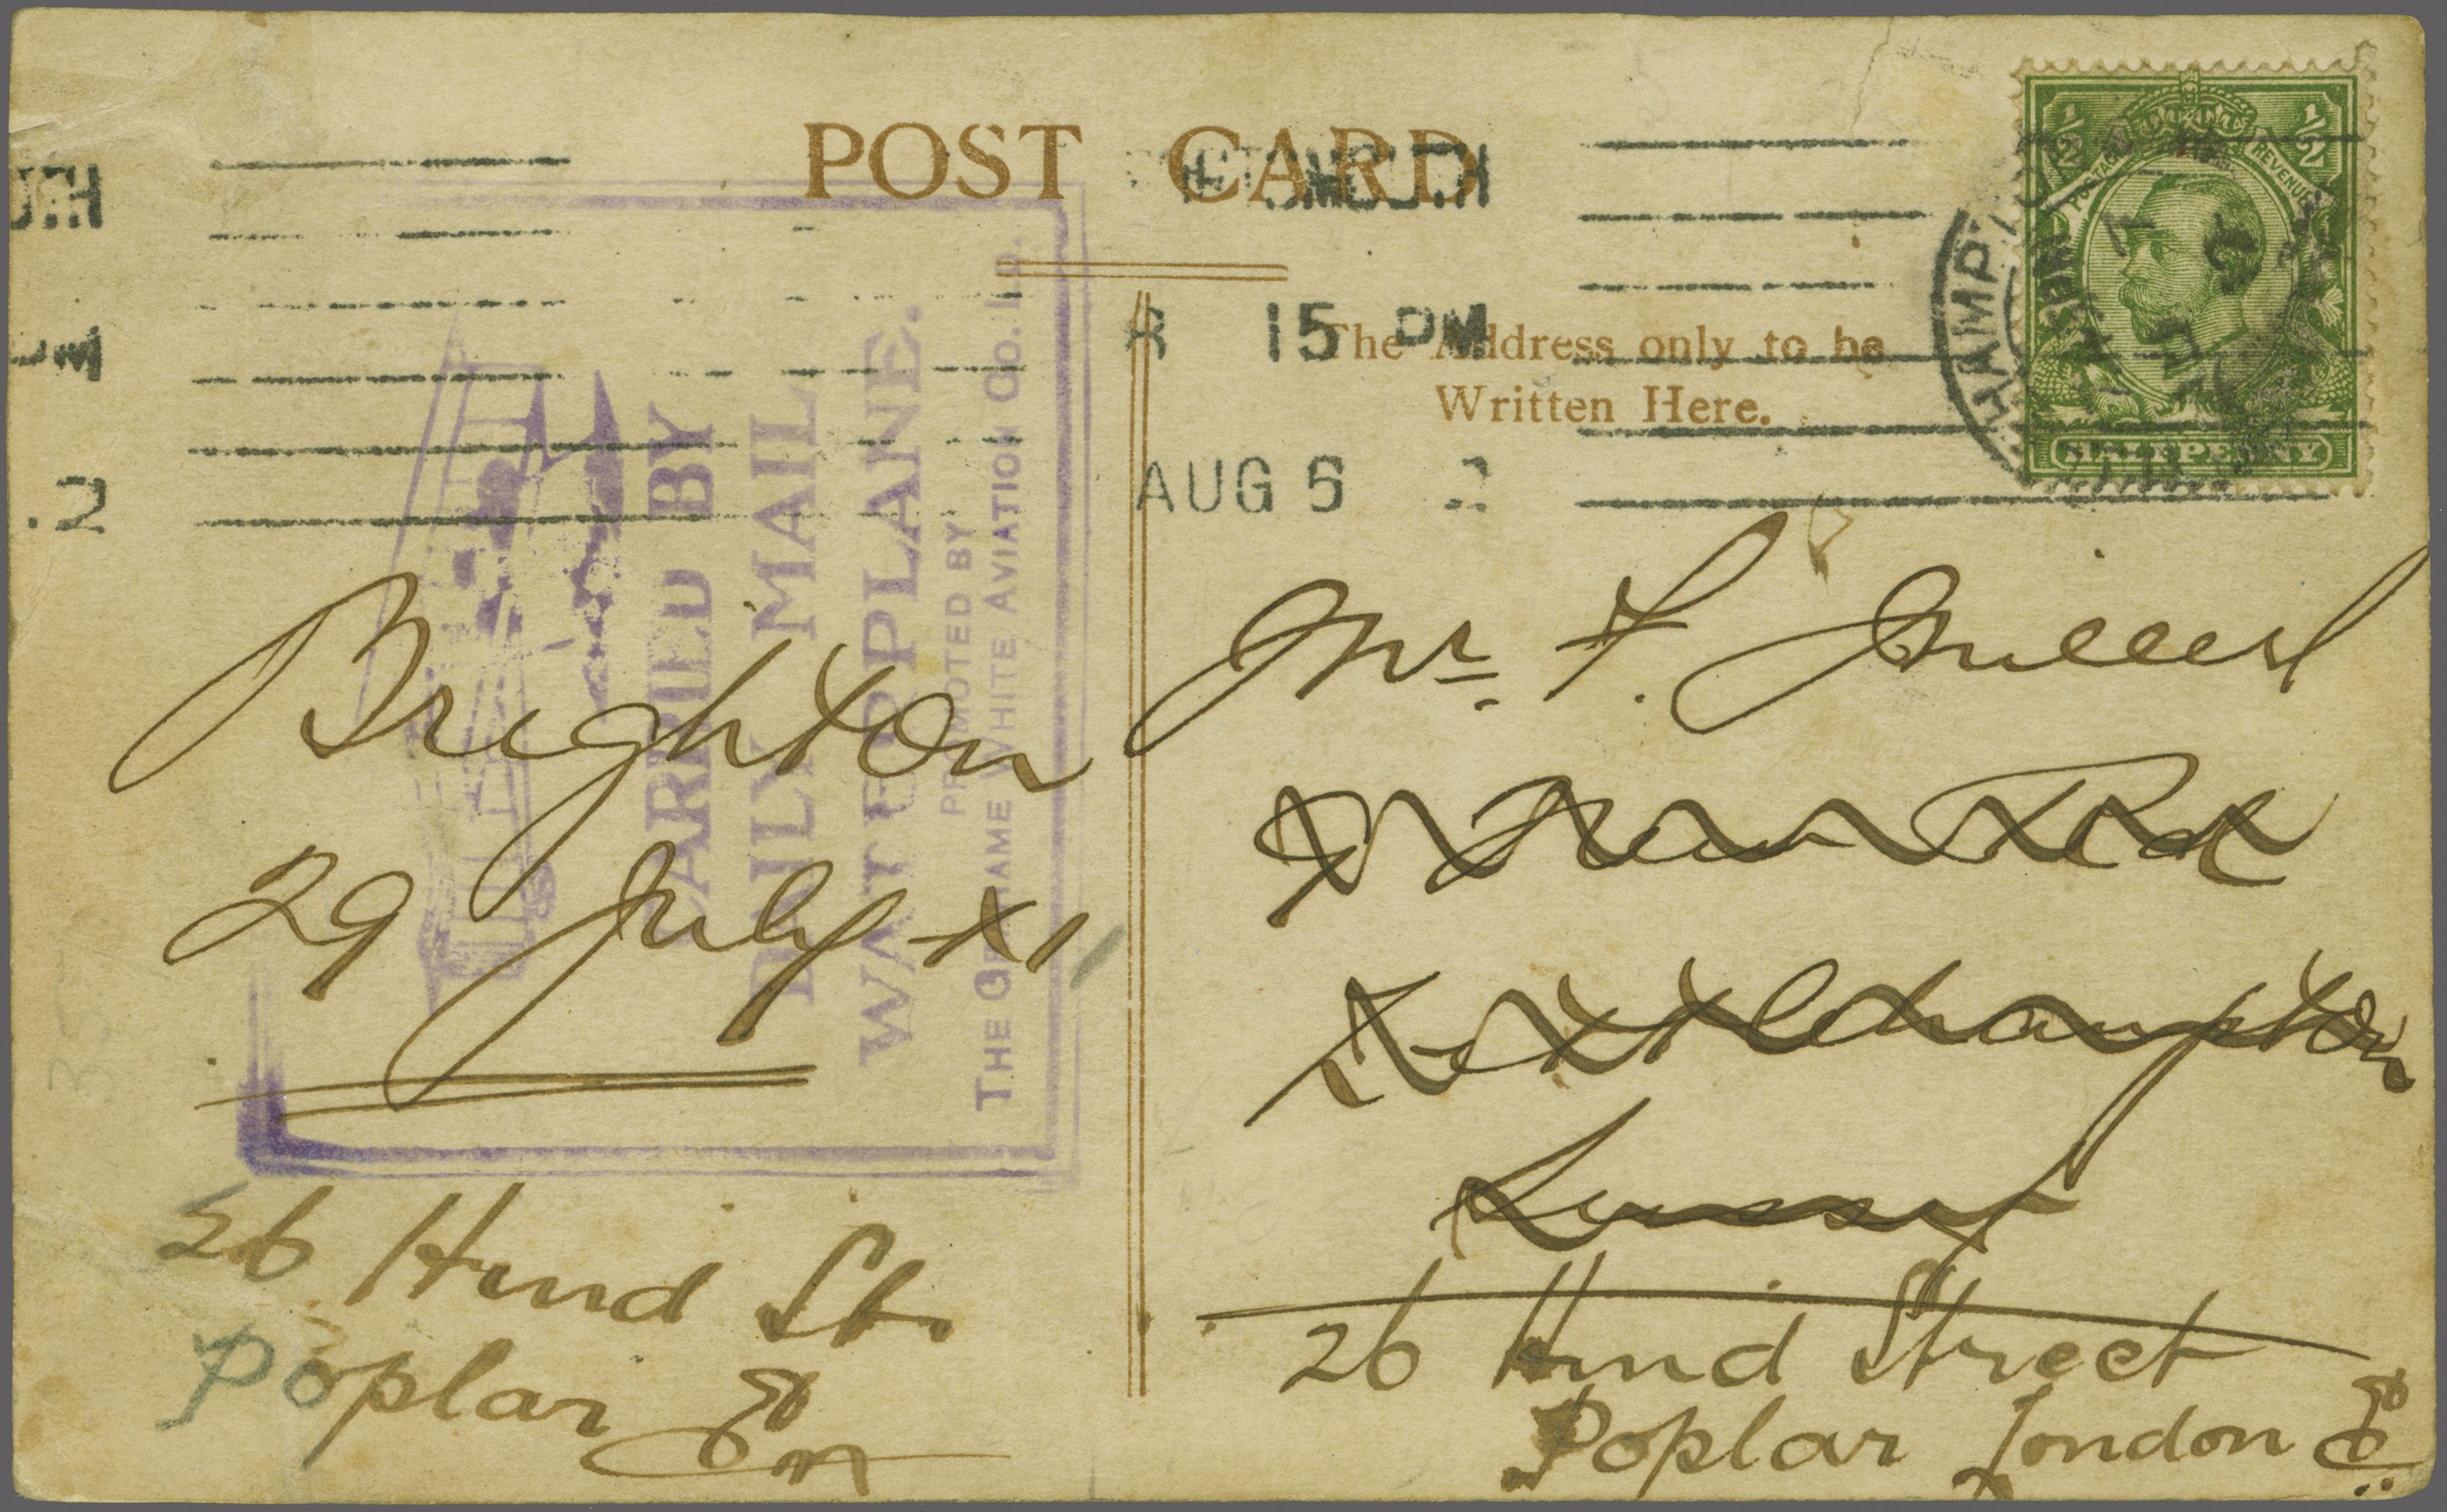 POST CARD
UTH
PM
.2
15 PM
AUG 5 2
The Address only to be
Written Here.
HAMPTON
POSTAGE REVENUE
½ ½
HALFPENNY
CARRIED BY
DAILY MAIL
WATERPLANE.
PROMOTED BY
THE GRAHAME WHITE AVIATION CO. LTD.
Brighton
29 July XII
26 Hind St.
Poplar E
Mr. F.
Littlehampton
Sussex
26 Hind Street
Poplar London E